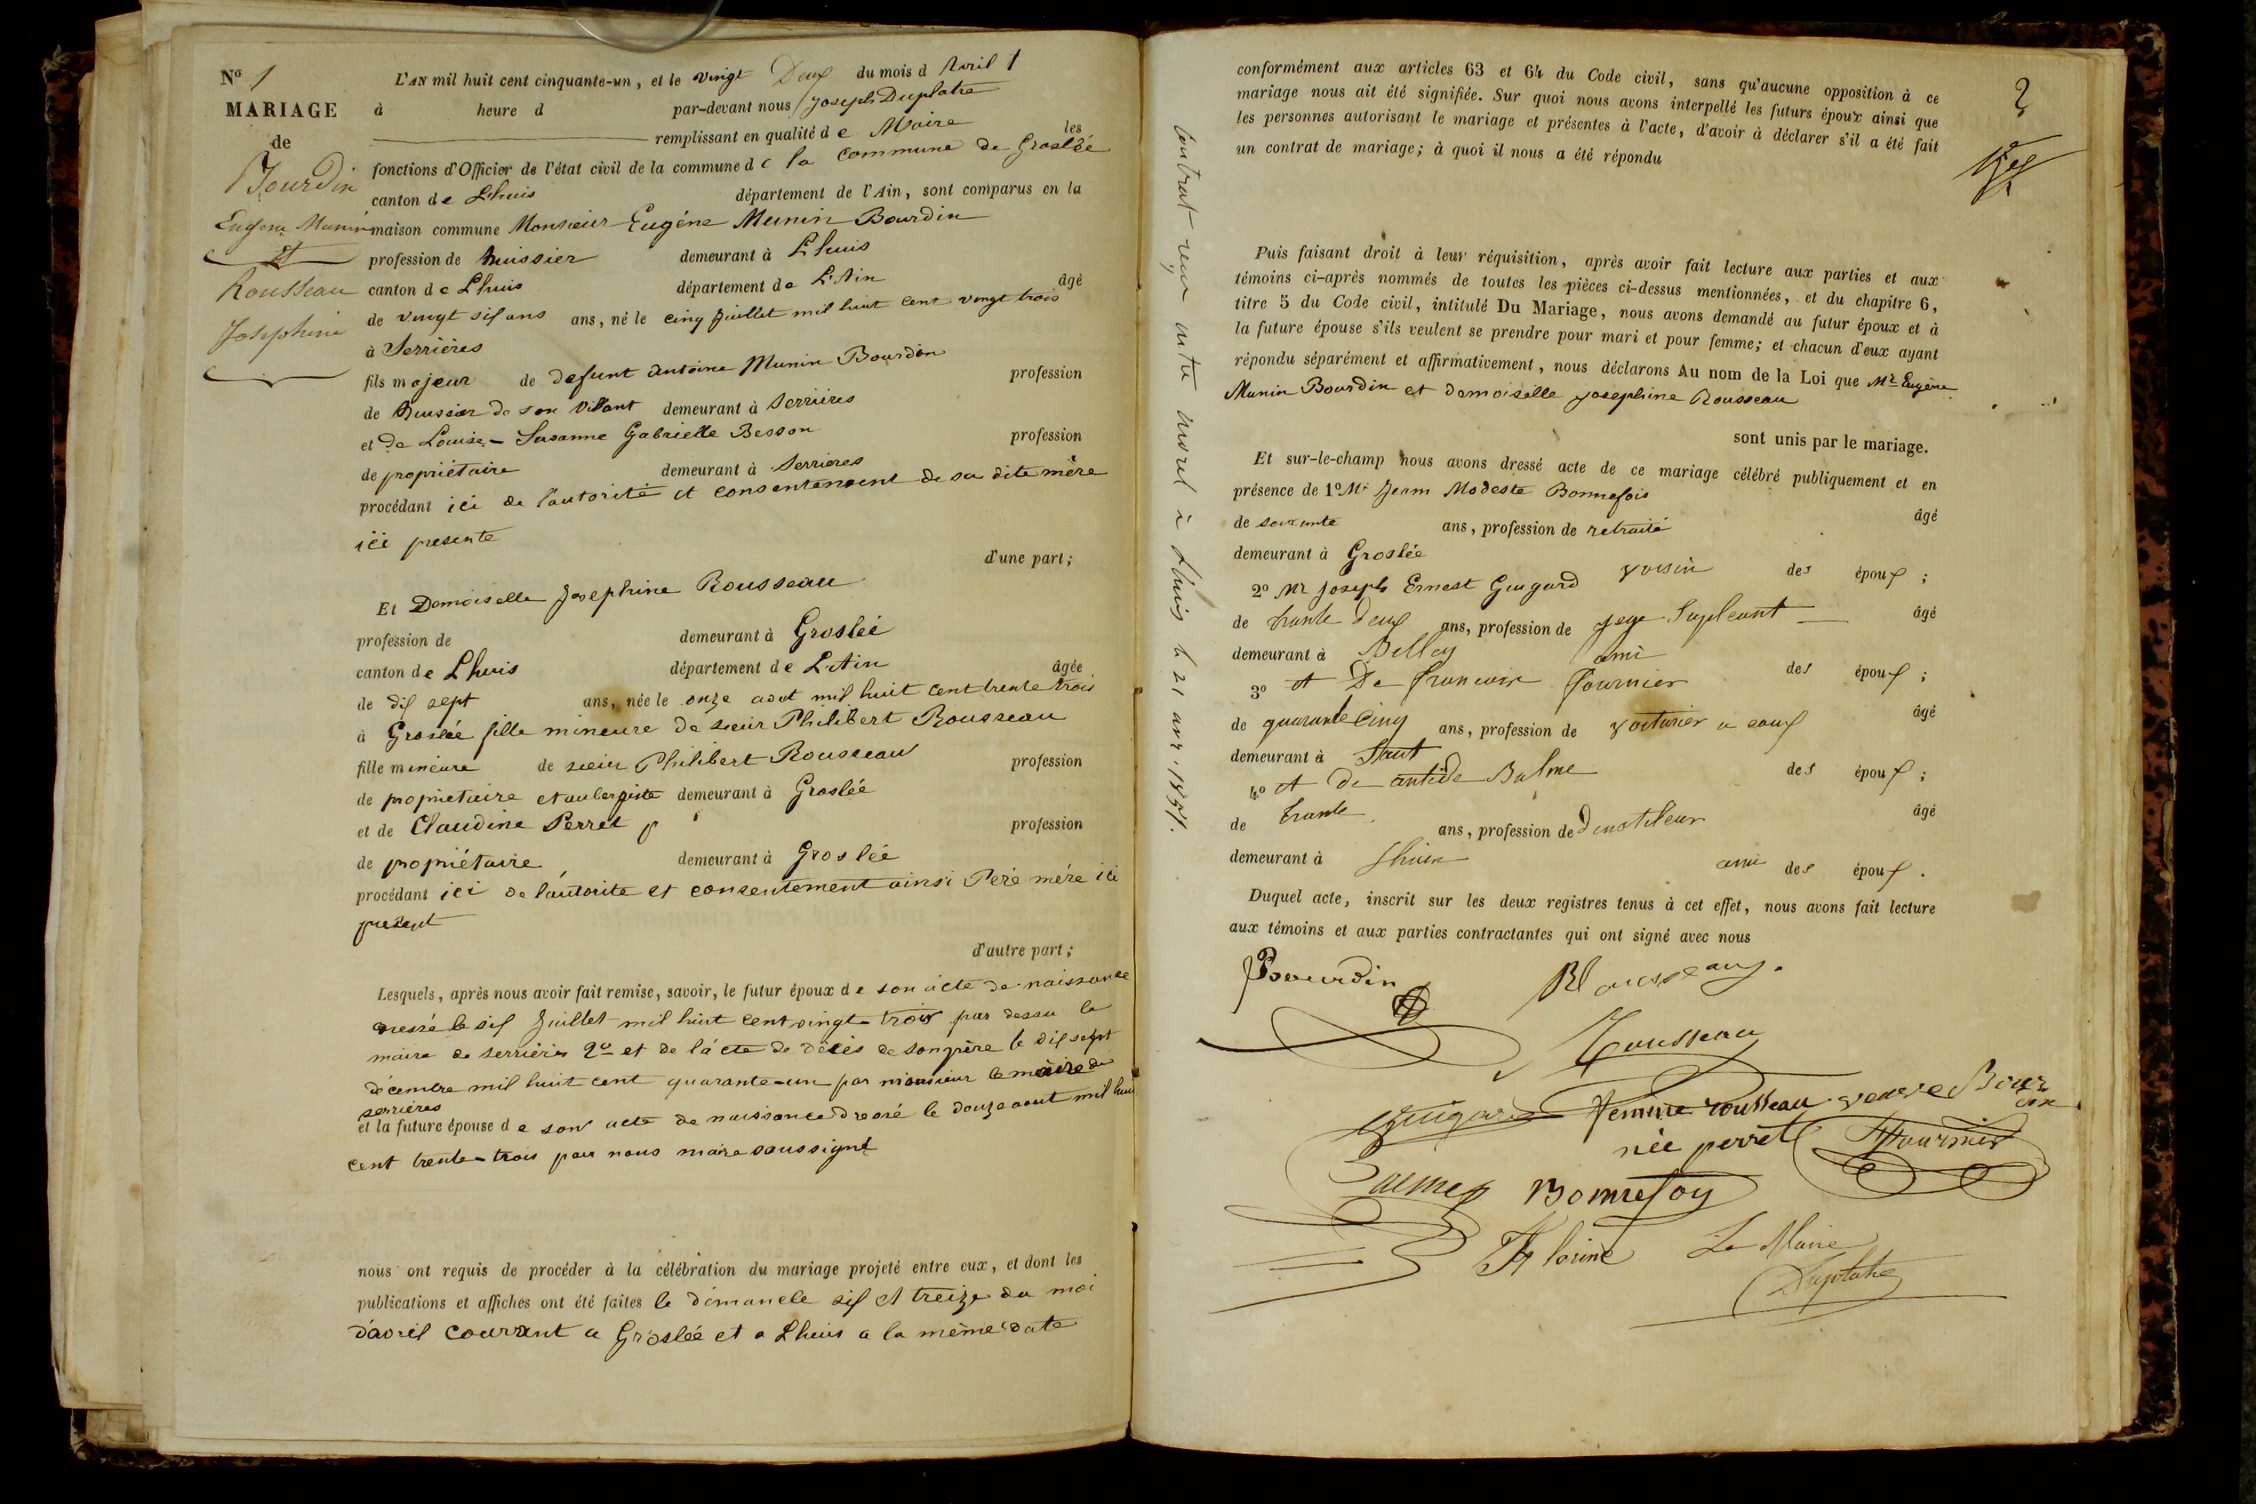 N° 1
MARIAGE
de
Bourdin
Eugene Munin
et
Rousseau
Josephine
L'AN mil huit cent cinquante-un, et le vingt Deux du mois d Avril
à heure d par-devant nous Joseph Duplatre
remplissant en qualité de Maire les
fonctions d'Officier de l'état civil de la commune de la commune de Groslée
canton de Lhuis département de l'Ain, sont comparus en la
maison commune Monsieur Eugéne Munin Bourdin
profession de huissier demeurant à Lhuis
canton de Lhuis département de L'Ain âgé
de vingt sif ans ans, né le cinq Juillet mil huit cent vingt trois
à Serrières
fils majeur de defunt Antoine Munin Bourdin profession
de huissier de son vivant demeurant à Serrières
et de Louise-Susanne Gabrielle Besson profession
de propriétaire demeurant à Serrieres
procédant ici de l'autorité et consentement de sa dite mère
ici presente
d'une part;
Et Demoiselle Josephine Rousseau
profession de demeurant à Groslée
canton de Lhuis département de L'Ain âgée
de dif sept ans, née le onze aout mil huit cent trente trois
à Groslée fille mineure de sieur Philibert Rousseau
fille mineure de sieur Philibert Rousseau profession
de proprietaire et aubergiste demeurant à Groslée
et de Claudine Perret profession
de propriétaire demeurant à Groslée
procédant ici de l'autorite et consentement ainsi Peré mére ici
present
d'autre part;
Lesquels, après nous avoir fait remise, savoir, le futur époux de son acte de naissance
dressé le sif Juillet mil huit cent vingt-trois par le
maire de serrières 2° et de l'acte de décès de son père le dif sept
décembre mil huit cent quarante-un par monsieur le maire de
serrières
et la future épouse de son acte de naissance dressé le douze aout mil huit
cent trente-trois par nous maire soussigné
nous ont requis de procéder à la célébration du mariage projeté entre eux, et dont les
publications et affiches ont été faites le dimanche sif et treize du moi
d'avril courant a Groslée et a Lhuis a la même date
Contrat reçu à Lhuis le 21 avr. 1851.
2
conformément aux articles 63 et 64 du Code civil, sans qu'aucune opposition à ce
mariage nous ait été signifiée. Sur quoi nous avons interpellé les futurs époux ainsi que
les personnes autorisant le mariage et présentes à l'acte, d'avoir à déclarer s'il a été fait
un contrat de mariage; à quoi il nous a été répondu
Puis faisant droit à leur réquisition, après avoir fait lecture aux parties et aux
témoins ci-après nommés de toutes les pièces ci-dessus mentionnées, et du chapitre 6,
titre 5 du Code civil, intitulé Du Mariage, nous avons demandé au futur époux et à
la future épouse s'ils veulent se prendre pour mari et pour femme; et chacun d'eux ayant
répondu séparément et affirmativement, nous déclarons Au nom de la Loi que Mr Eugène
Munin Bourdin et demoiselle Josephine Rousseau
sont unis par le mariage.
Et sur-le-champ nous avons dressé acte de ce mariage célébré publiquement et en
présence de 1° Mr Jean Modeste Bonnefois
de soixante ans, profession de retraité âgé
demeurant à Groslée
voisin des épouf;
2° Mr Joseph Ernest Guigard
de trante deuf ans, profession de juge Supleant âgé
demeurant à Belley ami des épouf;
3° et De francois fournier
de quarante cinq ans, profession de voiturier a eauf âgé
demeurant à Saut
des épouf;
4° et de antide Balme
de trante ans, profession de âgé
demeurant à Lhuis ami des épouf.
Duquel acte, inscrit sur les deux registres tenus à cet effet, nous avons fait lecture
aux témoins et aux parties contractantes qui ont signé avec nous
Bourdin Rousseau
Rousseau
Guigard femme rousseau veuve Bourdin
née perret Fournier
Balme Bonnefoy
Le Maire
Duplatre